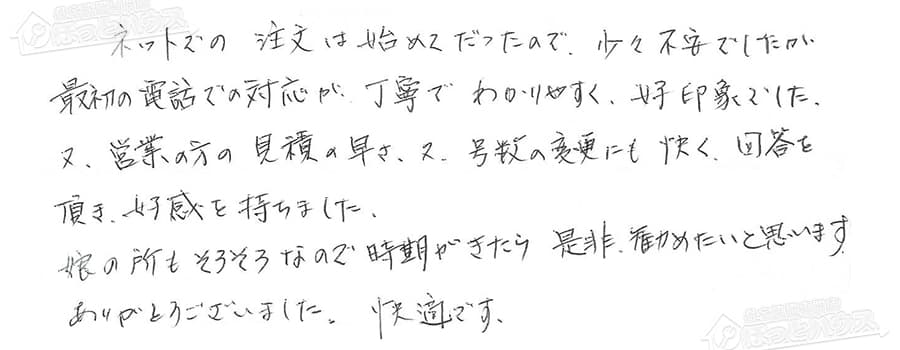 ネットでの 注文は始めてだったので、少々不安でしたが
最初の電話での対応が、丁寧で わかりやすく、好印象でした、
又、営業の方の見積の早さ、又、号数の変更にも 快く、回答を
頂き、好感を持ちました、
娘の所もそろそろなので時期がきたら 是非、勧めたいと思います
ありがとうございました。 快適です、
ほっとハウス
ほっとハウス